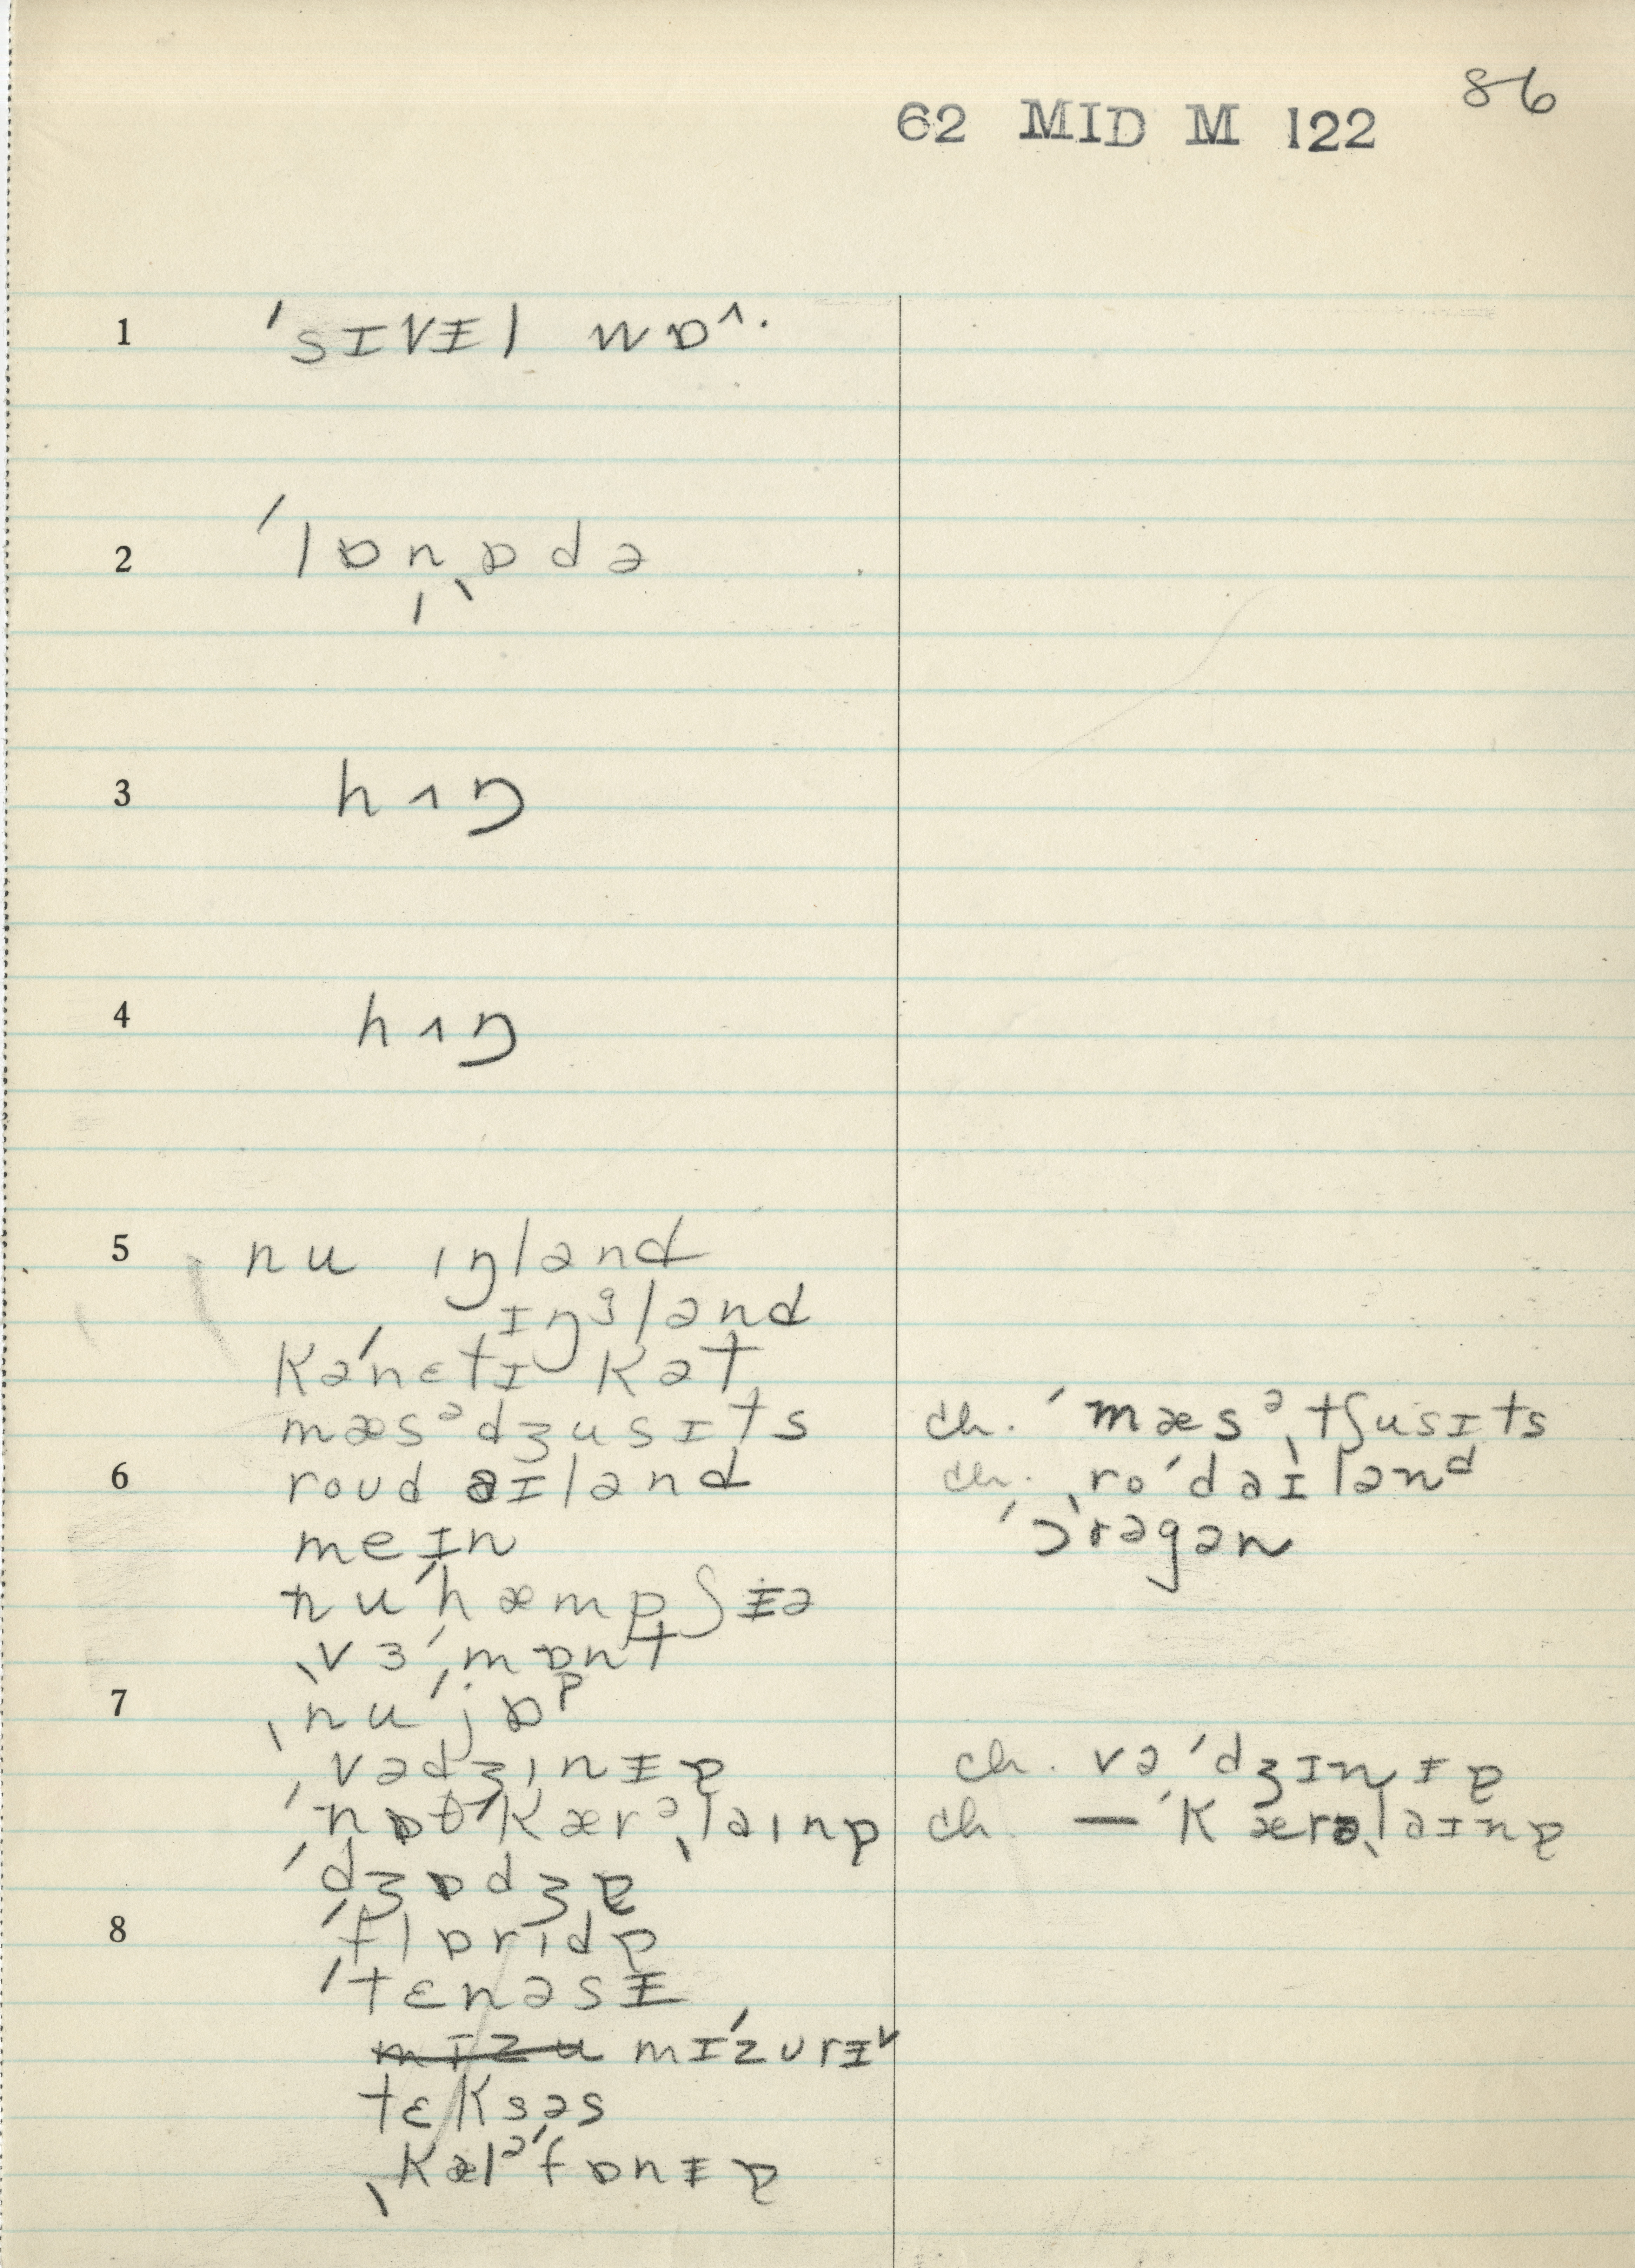 86
62 MID M 122
1 ˈsɪvɪ̵l wɒ^.
2 ˈlɒnˌɒdə
3 hʌŋ
4 hʌŋ
5 nu ɪŋlənd
ɪŋᶢlənd
kəˈnɛtɪkət
mæsᵊdʒusɪts ch. ˈmæsᵊˌtʃusɪts
6 roud aɪlənd ch. ˌroˈdaɪlənᵈ
meɪn ˈɔrəgən
nuˈhæmpʃɪ̵ə
ˌvɜˈmɒnt
7 ˌnuˈjɒᵖ
ˌvədʒɪnɪ̵ɐ ch. vəˈdʒɪnɪ̵ɐ
ˈnɒθˈkærᵊˌlaɪnɐ ch — ˈkærəˌlaɪnɐ
ˈdʒɒdʒɐ
8 ˈflɒrɪdɐ
ˈtɛnəsɪ̵
mɪzu mɪˈzurɪ̵ᵛ
tɛksəs
ˌkælᵊˈfɒnɪ̵ɐ